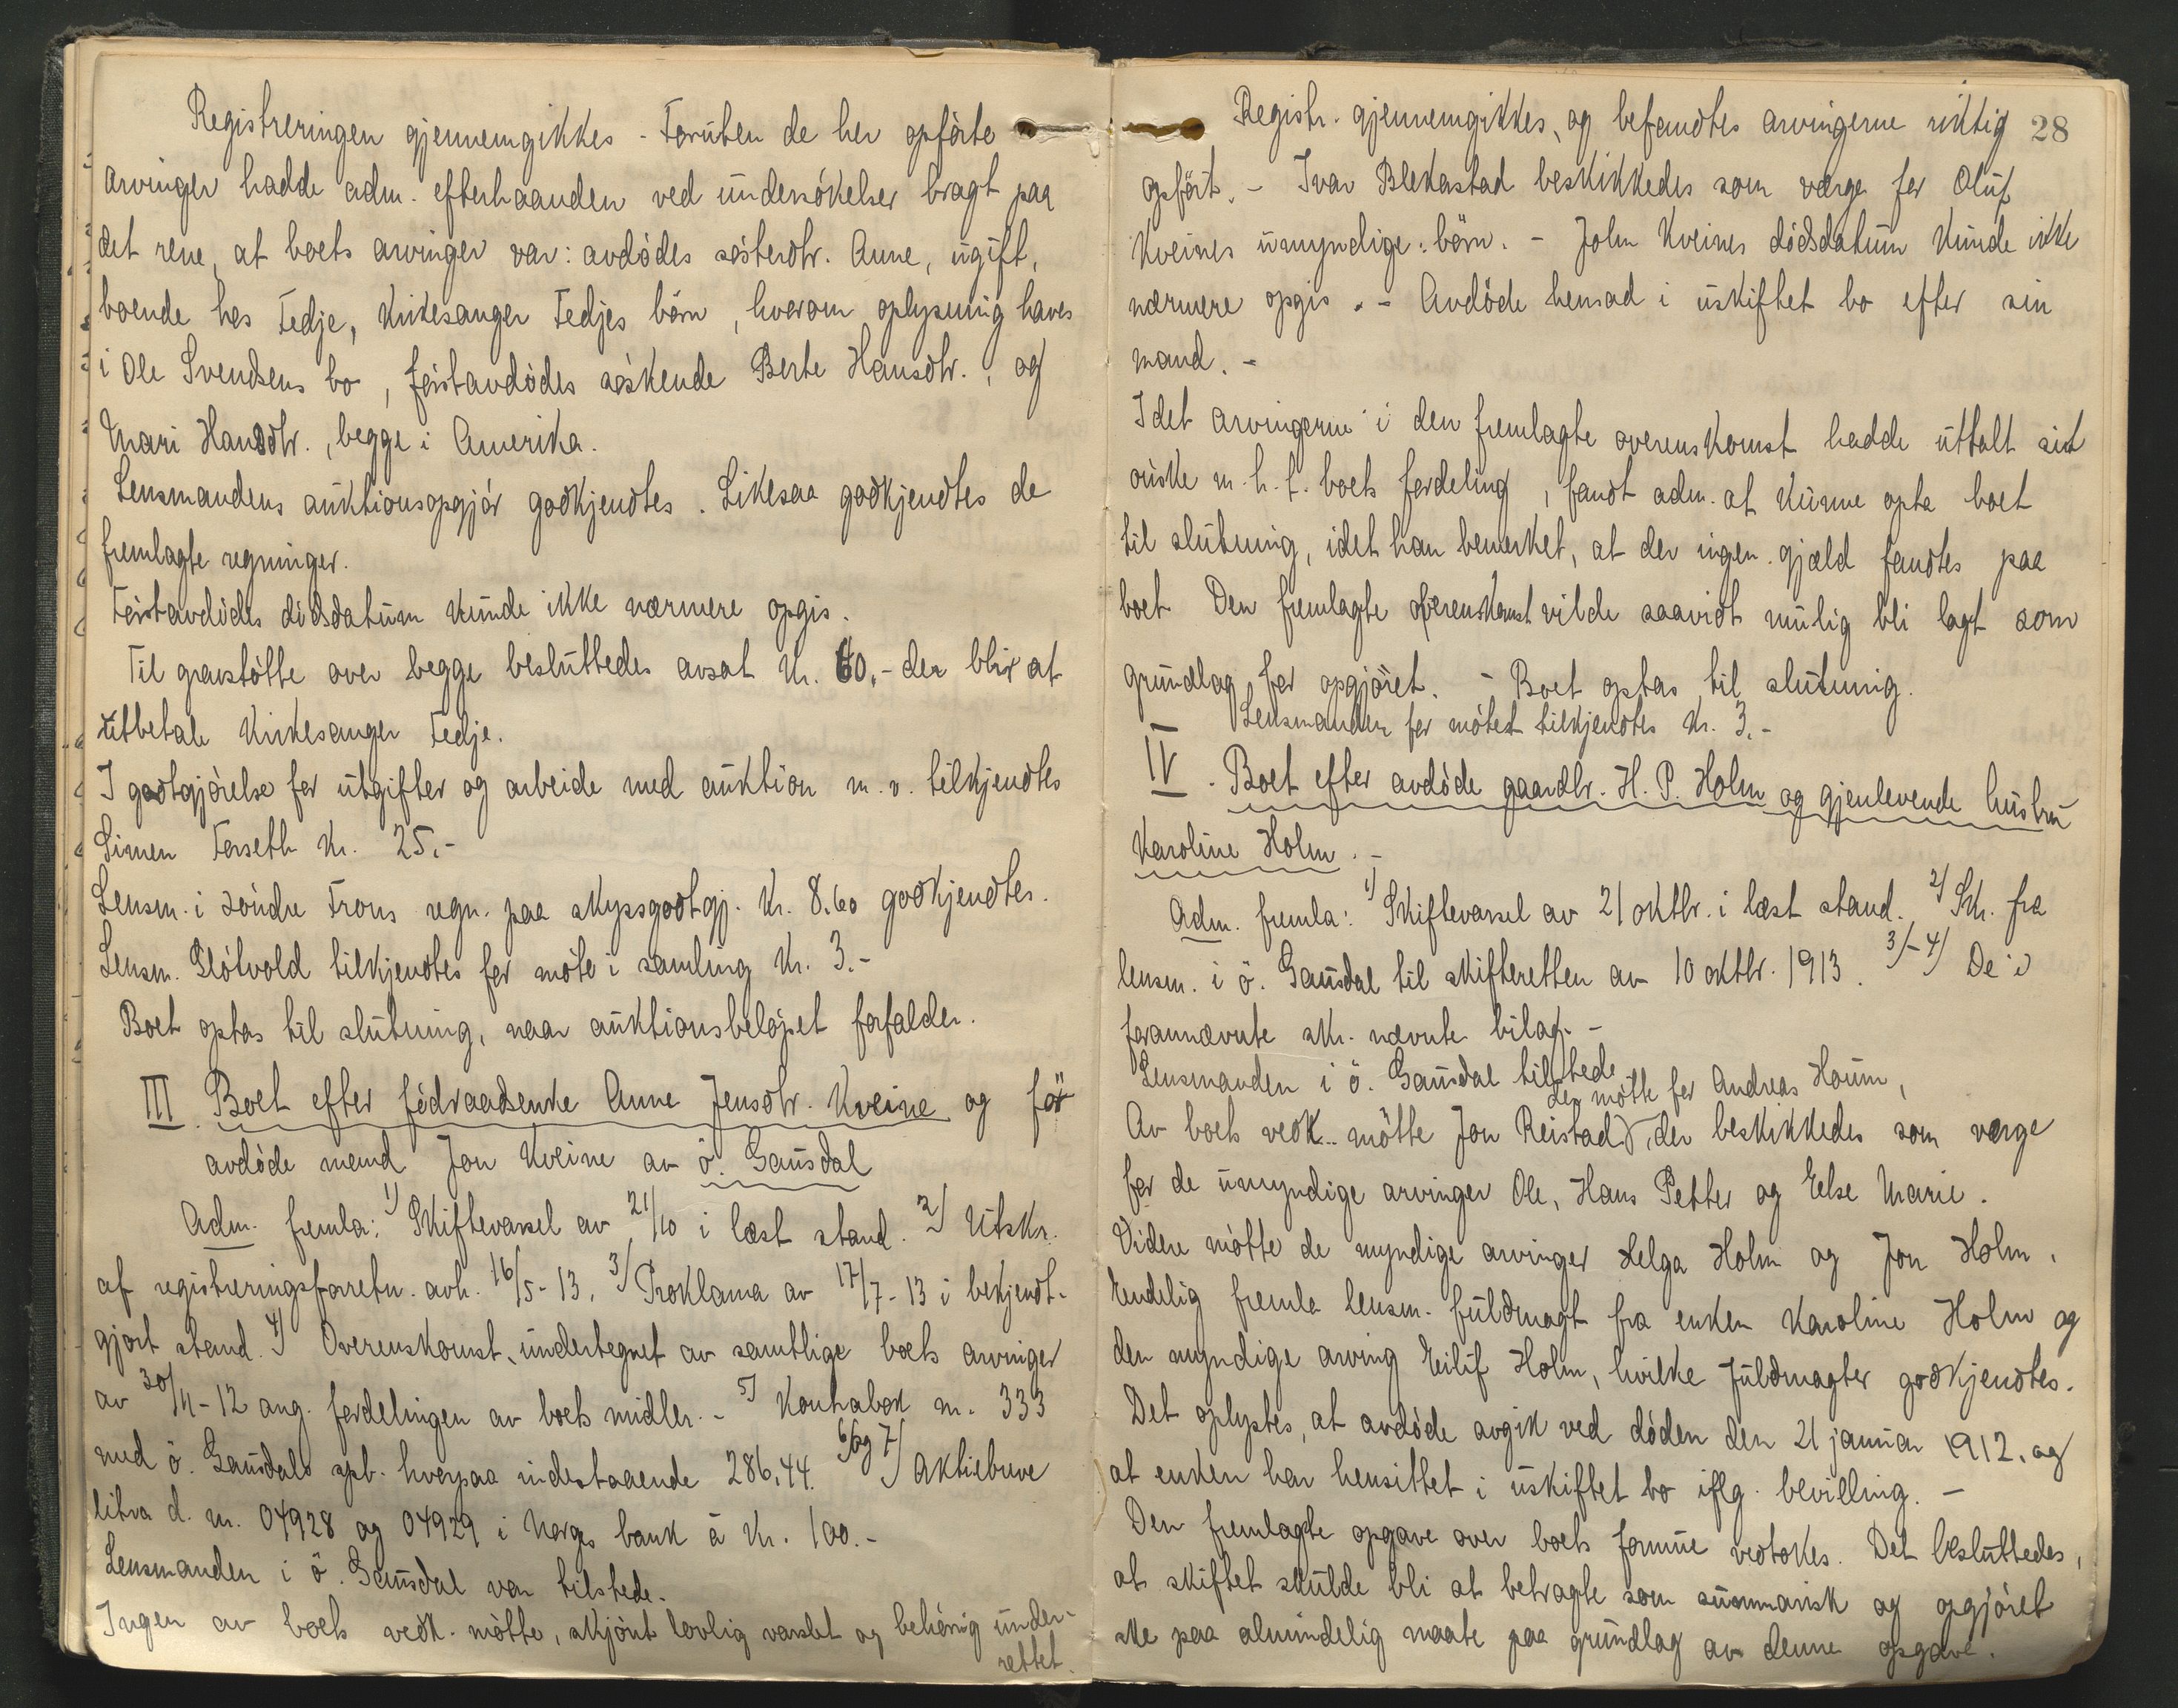 Registreringen gjennemgikkes - Foruten de her opførte
arvinger hadde adm. efterhaanden ved undersøkelser bragt paa
det rene, at boets arvinger var: avdødes søsterdtr. Anne, ugift,
boende hos Fedje, kirkesanger Fedjes børn, hvorom oplysning haves
i Ole Svendsens bo, førstavdødes søskende Berte Hansdtr., og
Mari Hansdtr., begge i Amerika.
Lensmandens auktionsopgjør godkjendtes. Likesaa godkjendtes de
fremlagte regninger.
Førstavdødes dødsdatum kunde ikke nærmere opgis.
Til gravstøtte over begge besluttedes avsat kr. 60,- der blir at
utbetale kirkesanger Fedje.
I godtgjørelse for utgifter og arbeide med auktion m. v. tilkjendtes
Simen Forseth kr. 25.-
Lensm. i søndre Frons regn. paa skyssgodtgj. kr. 8.60 godkjendtes.
Lensm. Fløtvold tilkjendtes for møte i samling kr. 3.-
Boet optas til slutning, naar auktionsbeløpet forfalder.
III. Boet efter fødraadsenke Anne Jensdtr. Kveine og før
avdøde mand Jon Kveine av ö. Gausdal
Adm. fremla: 1) Skiftevarsel av 21/10 i læst stand. 2) Utskr.
af registreringsforretn. avh. 16/5-13. 3) Proklama av 17/7-13 i bekjendt-
gjort stand. 4) Overenskomst, undertegnet av samtlige boets arvinger
av 30/11-12 ang. fordelingen av boets midler. - 5) Kontrabok nr. 333
med ö. Gausdals spb. hvorpaa indestaaende 286,44. 6) og 7) Aktiebreve
litra d. nr. 04928 og 04929 i Norges bank á kr. 100.-
Lensmanden i ö. Gausdal var tilstede.
Ingen av boets vedk. møtte, skjønt lovlig varslet og behørig under-
rettet.
28
Registr. gjennemgikkes, og befandtes arvingerne riktig
opført. - Ivar Blekastad beskikkedes som værge for Oluf
Kveines umyndige børn. - John Kveines dødsdatum kunde ikke
nærmere opgis. - Avdøde hensad i uskiftet bo efter sin
mand. -
Idet arvingerne i den fremlagte overenskomst hadde uttalt sit
ønske m. h. t. boets fordeling, fandt adm. at kunne opta boet
til slutning, idet han bemerket, at der ingen gjæld fandtes paa
boet Den fremlagte overenskomst vilde saavidt mulig bli lagt som
grundlag for opgjøret. - Boet optas til slutning.
Lensmanden for møtet tilkjendtes kr. 3.-
IV. Boet efter avdøde gaardbr. H. P. Holm og gjenlevende hustru
Karoline Holm. -
Adm. fremla: 1) Skiftevarsel av 21 oktbr. i læst stand. 2) Skr. fra
lensm. i ö. Gausdal til skifteretten av 10 oktbr. 1913. 3)-4) De i
forannævnte skr. nævnte bilag. -
Lensmanden i ö. Gausdal tilstede
der møtte for Andreas Houm,
Av boets vedk. møtte Jon Reistad, der beskikkedes som værge
for de umyndige arvinger Ole, Hans Petter og Else Marie.
Videre møtte de myndige arvinger Helga Holm og Jon Holm.
Endelig fremla lensm. fuldmagt fra enken Karoline Holm og
den myndige arving Eilif Holm, hvilke fuldmagter godkjendtes.
Det oplystes, at avdøde avgik ved døden den 21 januar 1912. og
at enken har hensittet i uskiftet bo iflg. bevilling. -
Den fremlagte opgave over boets formue vedtokes. Det besluttedes,
at skiftet skulde bli at betragte som summarisk og opgjøret
ske paa almindelig maate paa grundlag av denne opgave.